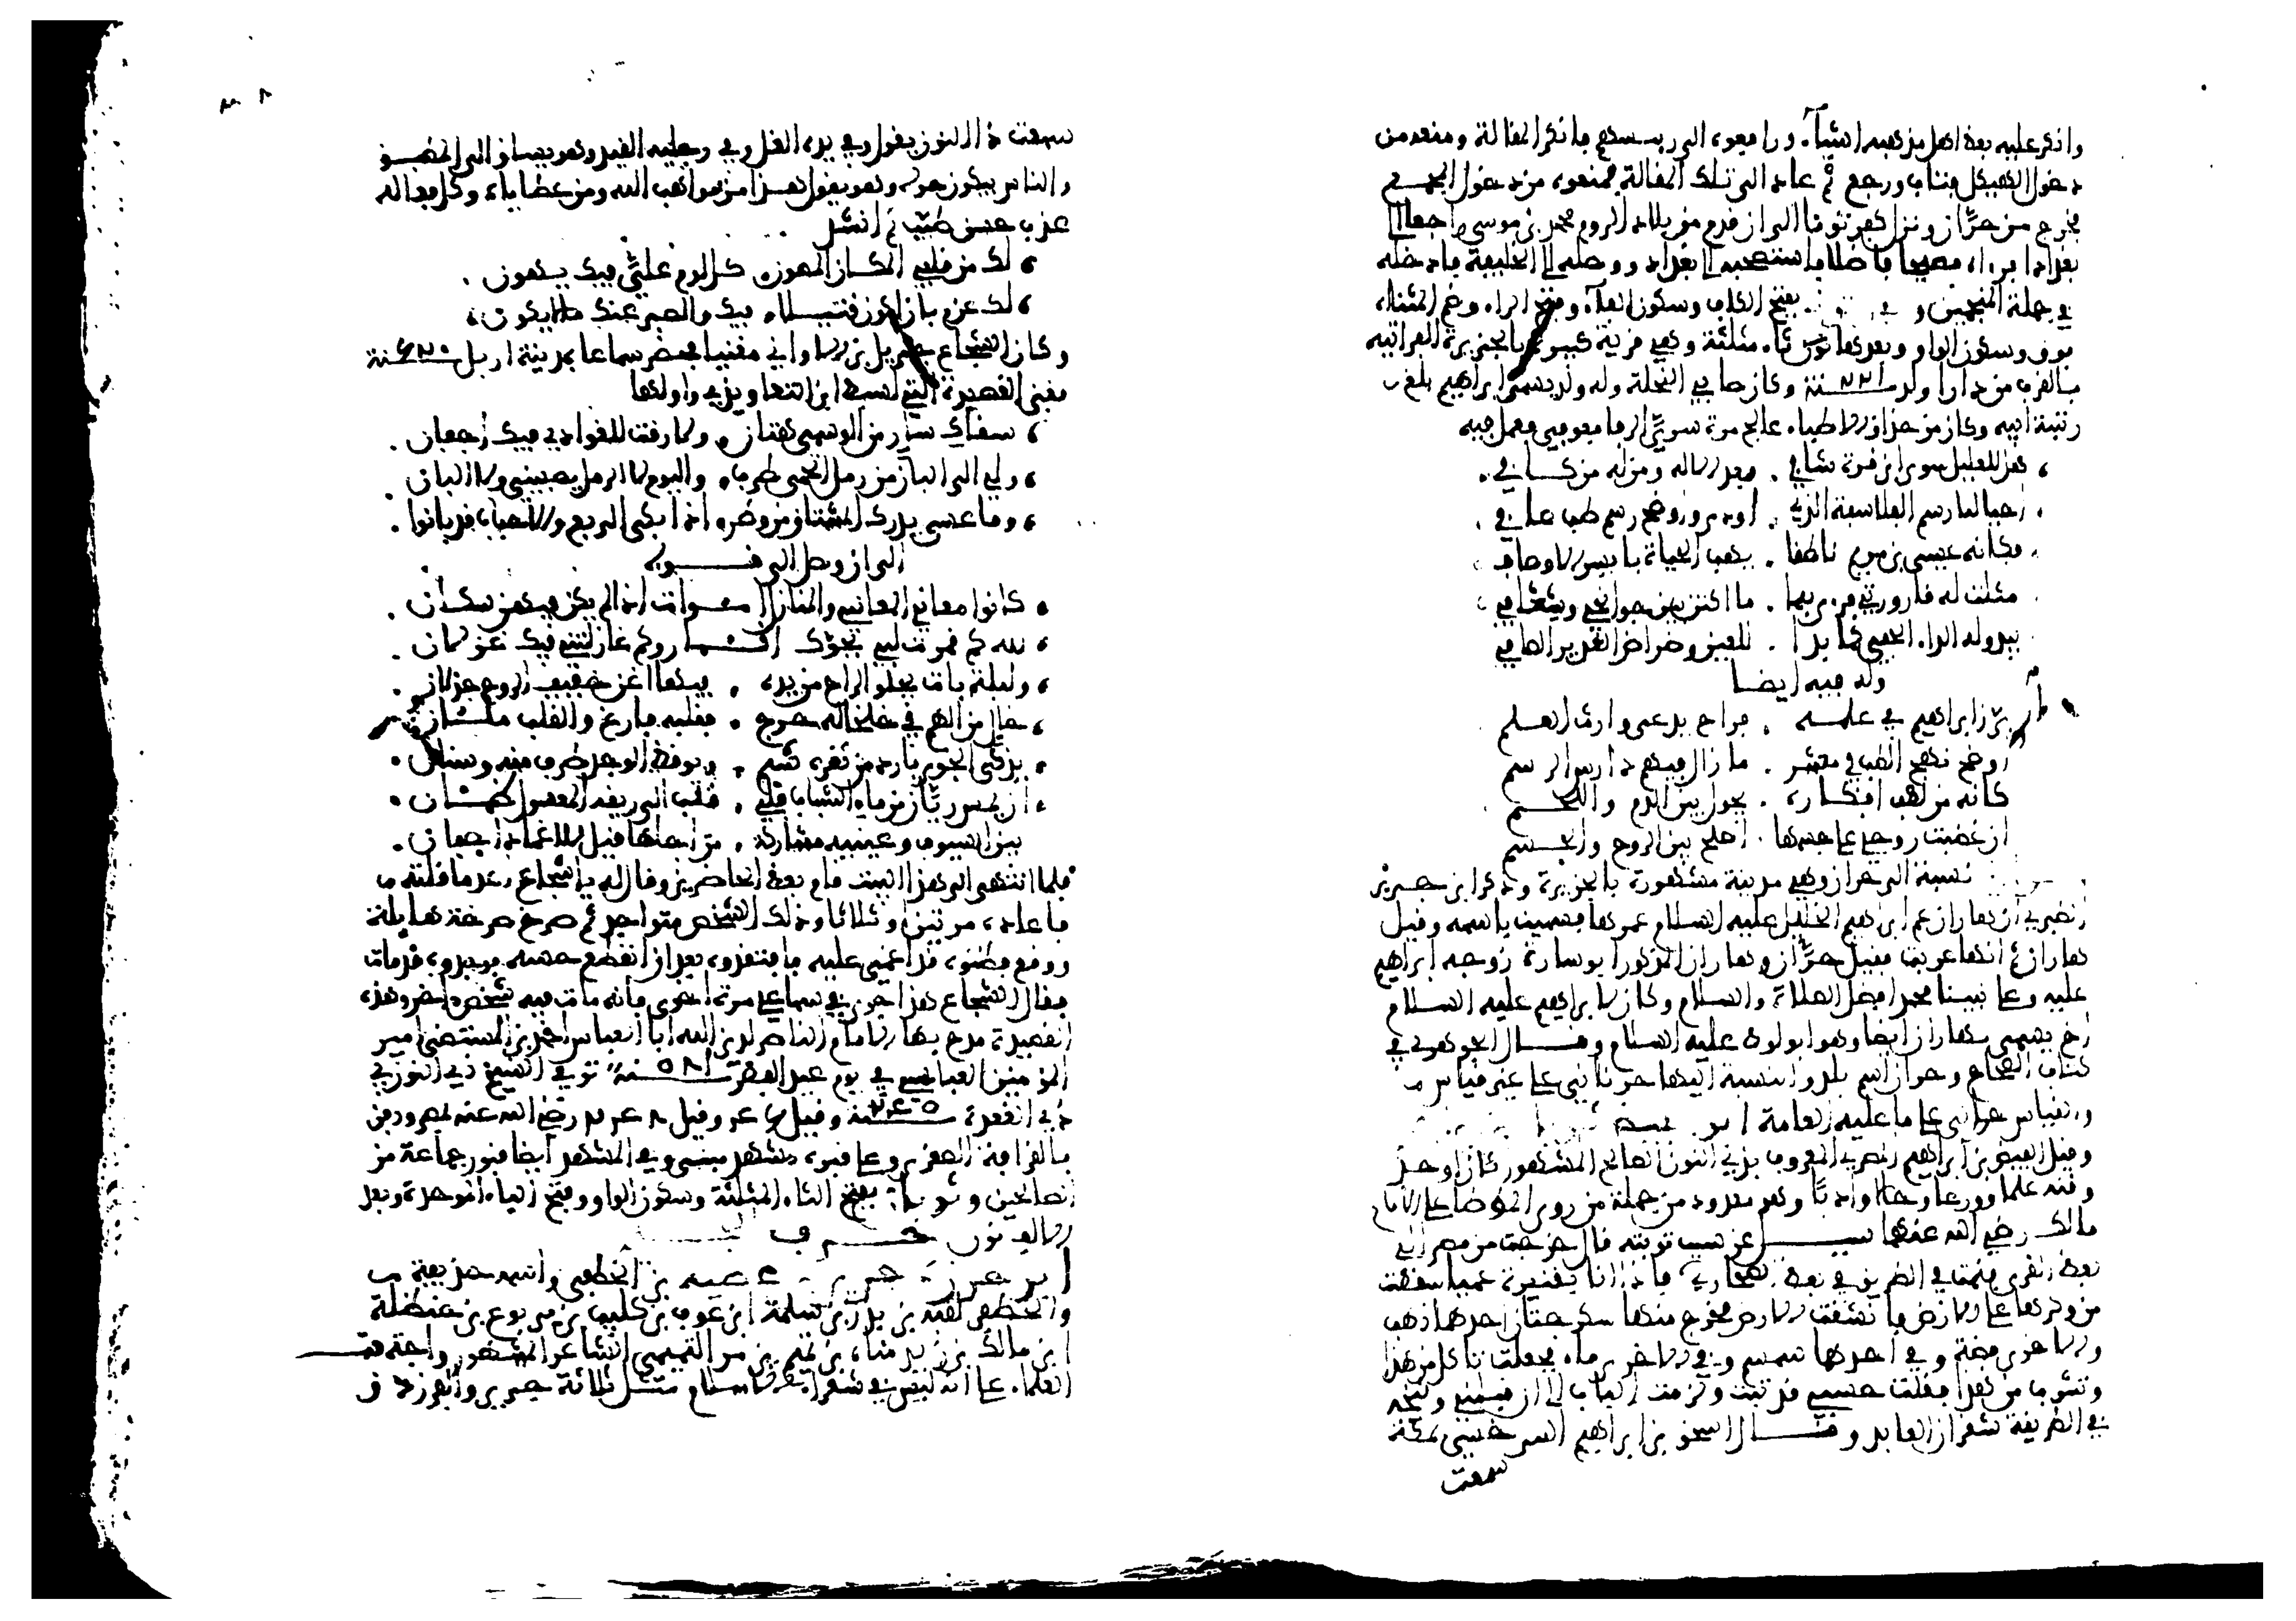 وانكر عليه بعض اهل مذهبه اشياء ورافعوه الى رييسهم فانكر المقالة ومنعه من
دخول الهيكل فتاب ورجع ثم عاد الى تلك المقالة فمنعوه من دخول المجمع
فخرج من حران ونزل كفرتوثا الى ان قدم من بلاد الروم محمد بن موسى راجعا الى
بغداد فرءاه فصيحا فاضلا فاستصحبه الى بغداد ووصله الى الخليفة فادخله
في جملة المنجمين و بفتح الكاب وسكون الفاء وفتح الراء وضم المثناة
فوق وسكون الواو وبعدها ثاء مثلثة وهي قرية كبيرة بالجزيرة الفراتية
بالقرب من دارا ولد سنة ٢٢١ وكان صابي النحلة وله ولد يسمى ابراهيم بلغ
رتبة ابيه وكان من حذاق الاطباء عالج مرة سري الرفا فعوفي فعمل فيه
هل للعليل سوى ابن قرة شافي . بعد الاله ومن له من كافي
احيا لنا رسم الفلاسفة الذي . اودى واوضح رسم طب عافي
فكانه عيسى بن مريم ناطقا . يهب الحياة بايسر الاوصاف
مثلت له قارورتي فرءى بها . ما اكتن بين جوانحي وشغافي
يبدو له الداء الخفي كما بدا . للعين رضراض الغدير الصافي
وله فيه ايضا
برز ابراهيم في علمه . فراح يدعى وارث العلم
اوضح نهج الطب في معشر . ما زال فيهم دارس الرسم
كانه من لطف افكاره . يجول بين الدم واللحم
ان غضبت روح على جسمها . اصلح بين الروح والجسم
نسبة الى حران وهي مدينة مشهورة بالجزيرة وذكر ابن جرير
الطبري ان هاران عم ابراهيم الخليل عليه السلام عمرها فسميت باسمه وقيل
هاران ثم انها عربت فقيل حران وهاران المذكور ابو سارة زوجة ابراهيم
عليه وعلى نبينا محمد افضل الصلاة والسلام وكان لابراهيم عليه السلام
اخ يسمى هاران ايضا وهو ابو لوط عليه السلام وقال الجوهري في
كتاب الصحاح وحران اسم بلد والنسبة اليها حرناني على غير قياس
والقياس حراني على ما عليه العامة
وقيل الفيض بن ابراهيم المصري المعروف بذي النون الصالح المشهور كان اوحد
وقته علما وورعا وحالا وادبا وهو معدود من جملة من روى الموطا على الامام
مالك رضي الله عنهما سيل عن سبب توبته قال خرجت من مصر الى
بعض القرى فنمت في الطريق في بعض الصحاري فاذا انا بقنبرة عميا سقطت
من وكرها على الارض فانشقت الارض فخرج منها سكرجتان احدهما ذهب
والاخرى فضة وفي احدها سمسم وفي الاخرى ماء فجعلت تاكل من هذا
وتشرب من هذا فقلت حسبي قد تبت ولزمت الباب الى ان قبلني وشيخه
في الطريقة شقران العابد وقال اسحق بن ابراهيم السرخسي بمكة
سمعت
سمعت ذا النون يقول وفي يده الغل وفي رجليه القيد وهو يساق الى المطبق
والناس يبكون حوله وهو يقول هذا من مواهب الله ومن عطاياه وكل فعاله
عذب حسن طيب ثم انشد
لك من قلبي المكان المصون . كل لوم علي فيك يهون
لك عزم بان اكون قتيلا . فيك والصبر عنك ما لا يكون
وكان الشجاع جبريل بن الاواني مغنيا فحضر سماعا بمدينة اربل سنة ٦٢٠
فغنى القصيدة التي لسبط ابن التعاويذي واولها
سقاك سار من الوسمي هتان . ولا رقت للغوادي فيك اجفان
ولي الى البان من رمل الحمى طرب . واليوم لا الرمل يصبيني ولا البان
وما عسى يدرك المشتاق من وطر . اذا بكى الربع والاحباب قد بانوا
الى ان وصل الى قوله
كانوا معاني المغاني والمنازل اموات اذا لم يكن فيهن سكان
لله كم قمرت لبي بجوك اقمار وكم غازلتني فيك غزلان
وليلة بات يجلو الراح من يده . فيها اغن خفيف الروح جذلان
خال من الهم في خلخاله حرج . فقلبه فارغ والقلب ملئان
يذكي الجوى بارد من ثغره شبم . ويوقظ الوجد طرف منه وسنان
ان يمس ريان من ماء الشباب فلي . قلب الى ريقه المعسول ظمئان
بين السيوف وعينيه مشاركة . من اجلها قيل للاغماد اجفان
فلما انتهى الى هذا البيت قام بعض الحاضرين وقال له يا شجاع اعد ما قلته
فاعاده مرتين او ثلاثا وذلك الشخص متواجد ثم صرخ صرخة هايلة
ووقع فظنوه قد اغمي عليه فافتقدوه بعد ان انقطع حسه فوجدوه قد مات
فقال الشجاع هذا جرى في سماعي مرة اخرى فانه مات فيه شخص اخر وهذه
القصيدة مدح بها الامام الناصر لدين الله ابا العباس احمد بن المستضي امير
المؤمنين العباسي في يوم عيد الفطر سنة ٥٨١ توفي الشيخ ذي النون في
ذي القعدة سنة ٢٤٥ وقيل ٦ وقيل ٨ رضي الله عنه بمصر ودفن
بالقرافة الصغرى وعلى قبره مشهد مبني وفي المشهد ايضا قبور جماعة من
الصالحين وثوبان بفتح الثاء المثلثة وسكون الواو وفتح الباء الموحدة وبعد
الالف نون حرف
ابو حزرة جرير بن عطية بن الخطفى واسمه حذيفة
والخطفى لقبه بن بدر بن سلمة ابن عوف بن كليب بن يربوع بن حنظلة
ابن مالك بن زيد مناة بن تميم بن مر التميمي الشاعر المشهور واجتمعت
العلماء على انه ليس في شعراء الاسلام مثل ثلاثة جرير والفرزدق